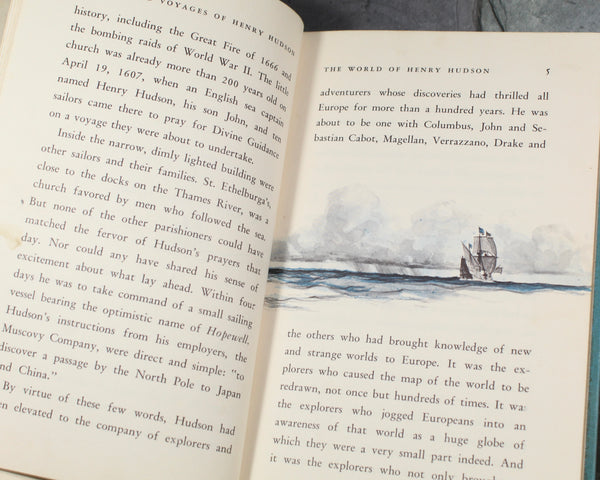 VOYAGES OF HENRY HUDSON
history, including the Great Fire of 1666 and
the bombing raids of World War II. The little
church was already more than 200 years old on
April 19, 1607, when an English sea captain
named Henry Hudson, his son John, and ten
sailors came there to pray for Divine Guidance
on a voyage they were about to undertake.
Inside the narrow, dimly lighted building were
other sailors and their families. St. Ethelburga's,
close to the docks on the Thames River, was a
church favored by men who followed the sea.
But none of the other parishioners could have
matched the fervor of Hudson's prayers that
day. Nor could any have shared his sense of
excitement about what lay ahead. Within four
days he was to take command of a small sailing
vessel bearing the optimistic name of Hopewell.
Hudson's instructions from his employers, the
Muscovy Company, were direct and simple: "to
discover a passage by the North Pole to Japan
and China."
By virtue of these few words, Hudson had
elevated to the company of explorers and
THE WORLD OF HENRY HUDSON 5
adventurers whose discoveries had thrilled all
Europe for more than a hundred years. He was
about to be one with Columbus, John and Se-
bastian Cabot, Magellan, Verrazzano, Drake and
the others who had brought knowledge of new
and strange worlds to Europe. It was the ex-
plorers who caused the map of the world to be
redrawn, not once but hundreds of times. It was
the explorers who jogged Europeans into an
awareness of that world as a huge globe of
which they were a very small part indeed. And
it was the explorers who not only